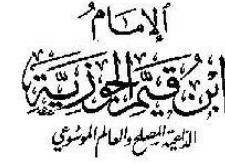 الإمام
ابن قيم الجوزية
الداعية المصلح والعالم الموسوعي